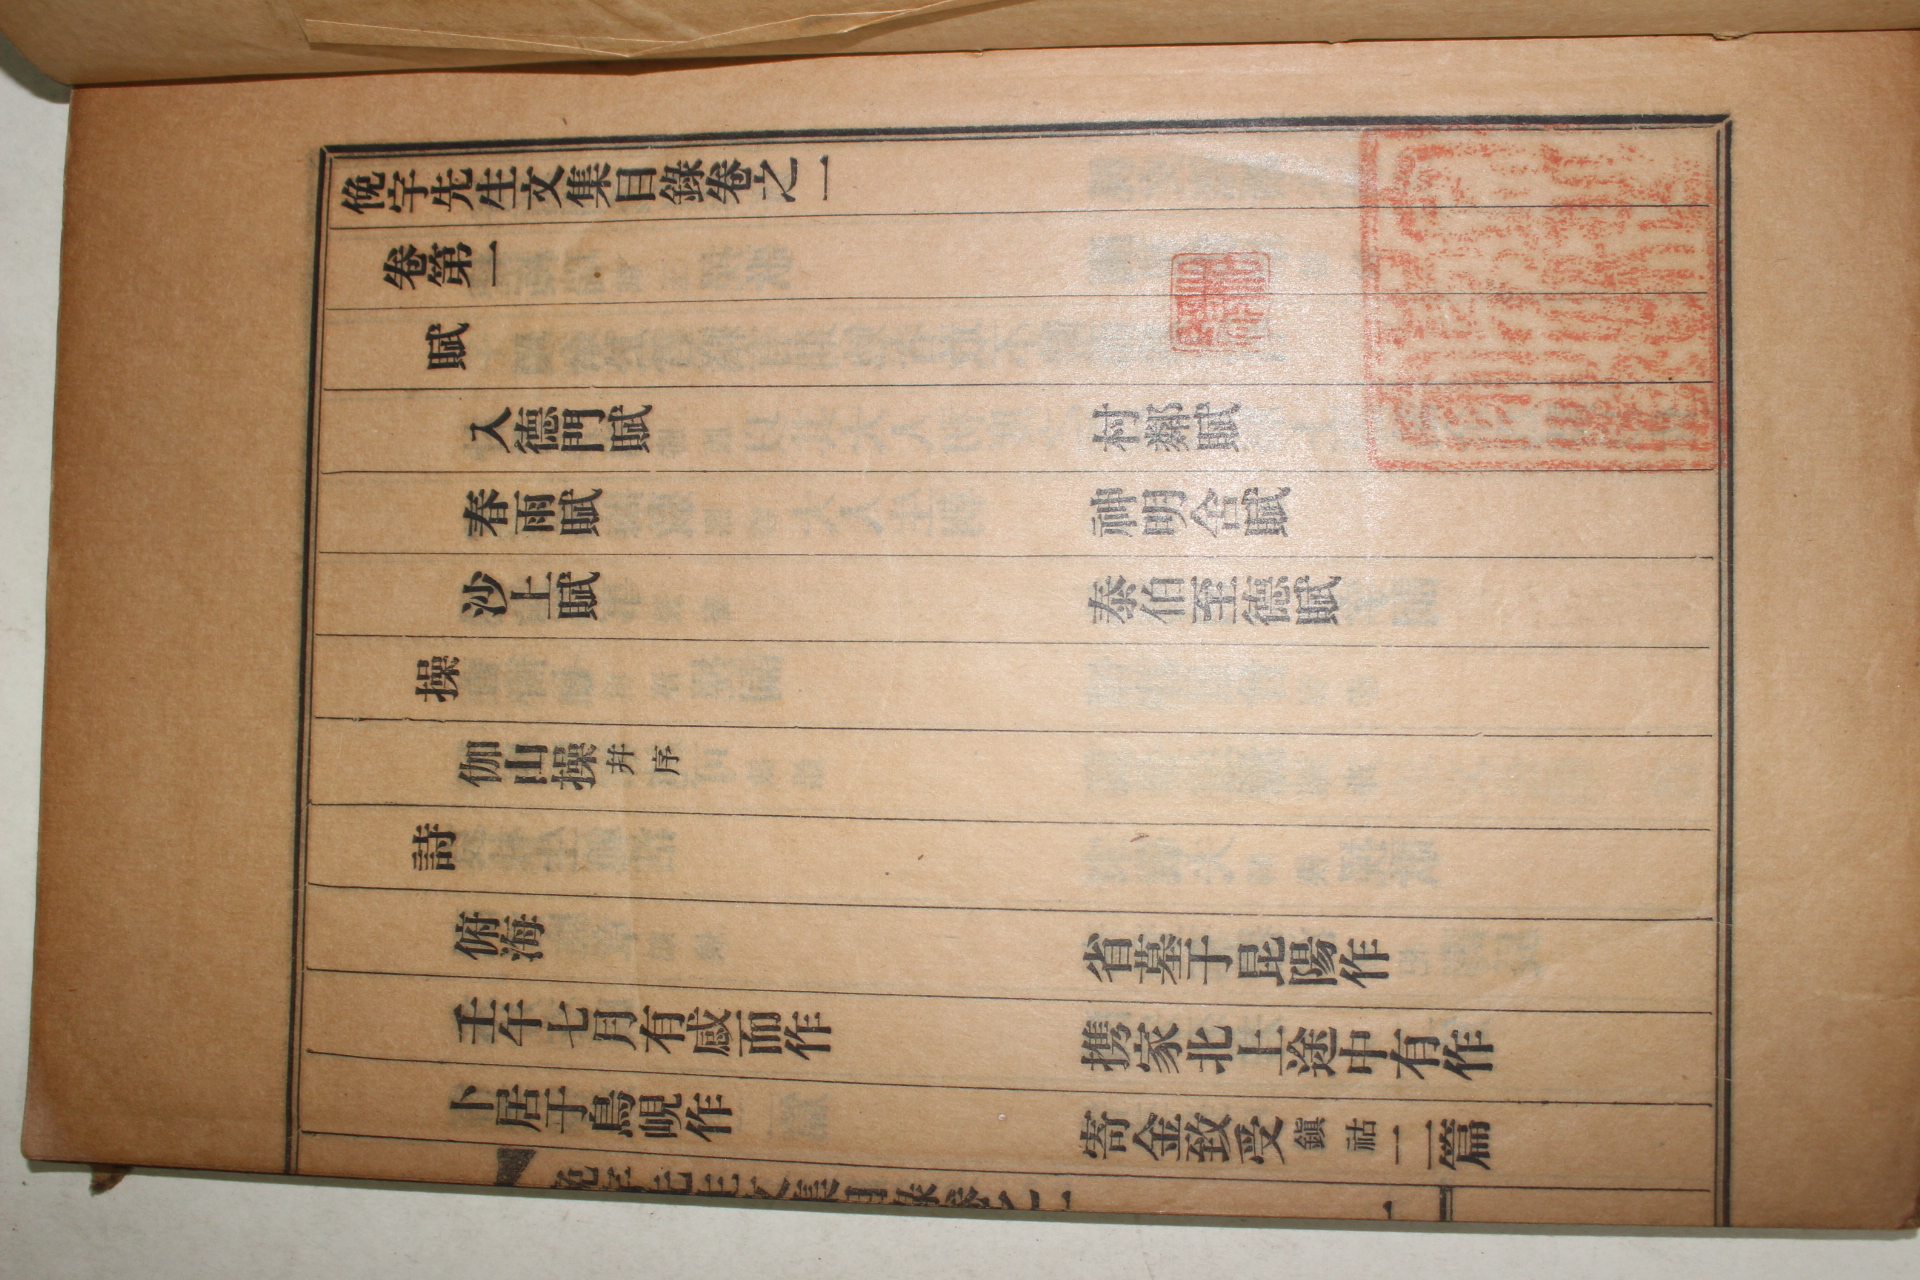 俛宇先生文集目錄卷之一
卷第一
賦
入德門賦 村鄰賦
春雨賦 神明舍賦
沙上賦 泰伯至德賦
操
伽山操 幷序
詩
俯海 省墓于昆陽作
壬午七月有感而作 携家北上途中有作
卜居于鳥峴作 寄金致受 鎭祜 二篇
俛宇先生文集目錄卷之一 一